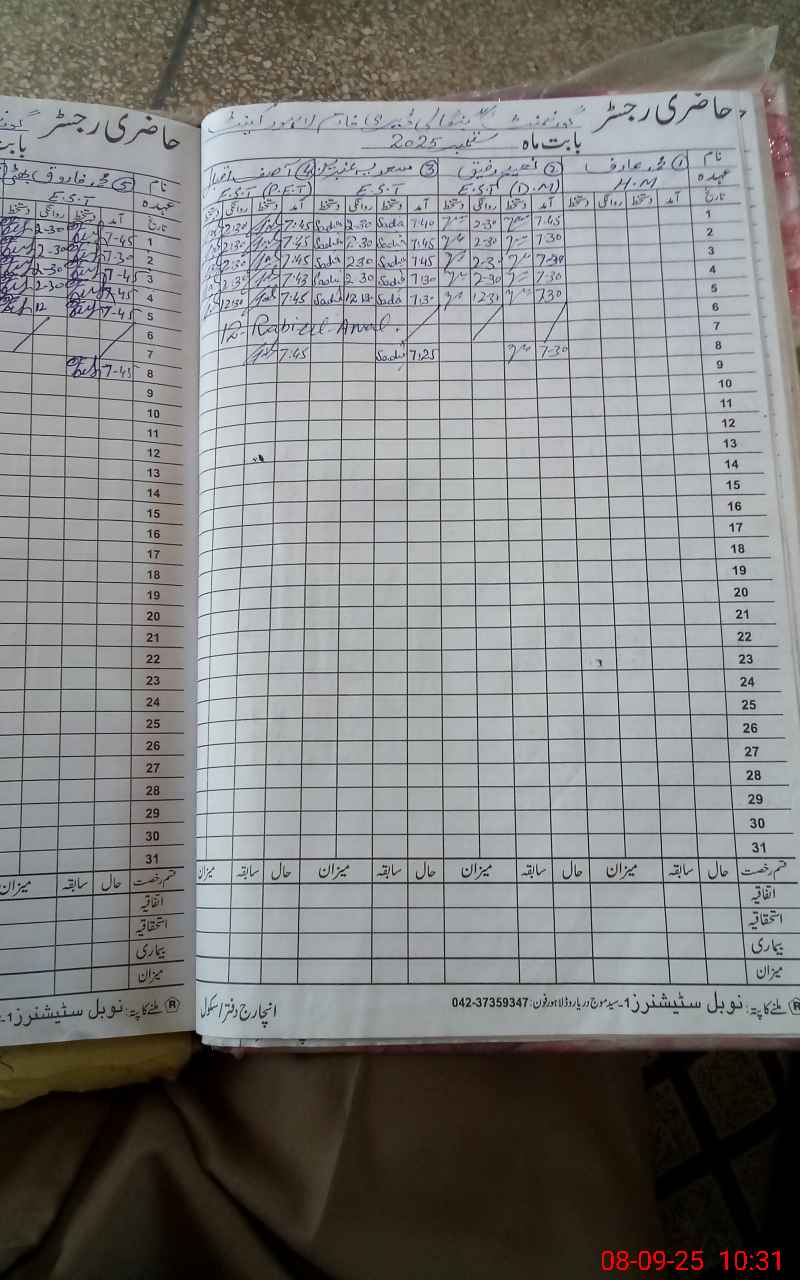 حاضری رجسٹر
گورنمنٹ
بابت ماہ ستمبر 2025
نام ① محمد عارف ② رفیق ③ ④ آصف
عہدہ H.M E.S.T (D.M) E.S.T E.S.T (P.E.T)
تاریخ آمد دستخط روانگی دستخط آمد دستخط روانگی دستخط آمد دستخط روانگی دستخط آمد دستخط روانگی دستخط
1 7.45 2-30 7.40 Sadia 2-30 Sadia 7.45 2:30
2 7.30 2-30 7.45 Sadia 2.30 Sadia 7.45 2:30
3 7-30 2-30 7.45 Sadia 2.30 Sadia 7.45 2:30
4 7-30 2-30 7.30 Sadia 2 30 Sadia 7.43 2:30
5 7.30 12.31 7.30 Sadia Sadia 7.45 12:30
6
12-Rabi-ul-Awal.
7
8 7-30 7.25 Sadia 7.45
9
10
11
12
13
14
15
16
17
18
19
20
21
22
23
24
25
26
27
28
29
30
31
قسم رخصت حال سابقہ میزان حال سابقہ میزان حال سابقہ میزان حال سابقہ میزان
اتفاقیہ
استحقاقیہ
بیماری
میزان
® ملنے کا پتہ: نوبل سٹیشنرز 1-سید موج دریا روڈ لاہور فون: 042-37359347 انچارج دفتر/سکول
حاضری رجسٹر
بابت
نام ⑤ محمد فاروق بھٹی
عہدہ E.S.T
تاریخ آمد دستخط روانگی دستخط
1 7-45 2-30
2 7.30 2-30
3 7-45 2-30
4 7-45 2-30
5 7-45 12
6
7
8 7-45
9
10
11
12
13
14
15
16
17
18
19
20
21
22
23
24
25
26
27
28
29
30
31
قسم رخصت حال سابقہ میزان
اتفاقیہ
استحقاقیہ
بیماری
میزان
® ملنے کا پتہ: نوبل سٹیشنرز 1-
08-09-25 10:31